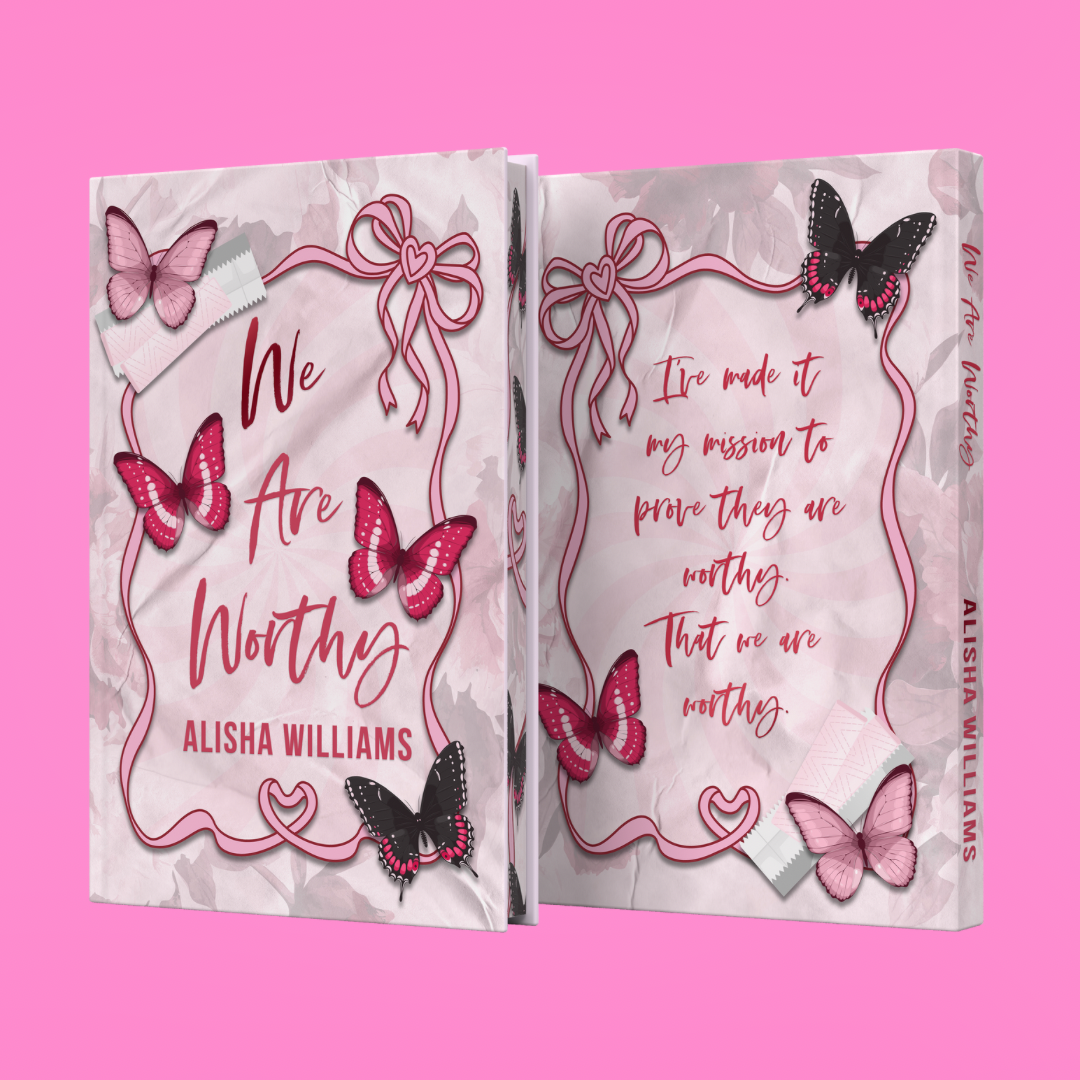 We
Are
Worthy
ALISHA WILLIAMS
I've made it
my mission to
prove they are
worthy.
That we are
worthy.
We Are Worthy
ALISHA WILLIAMS